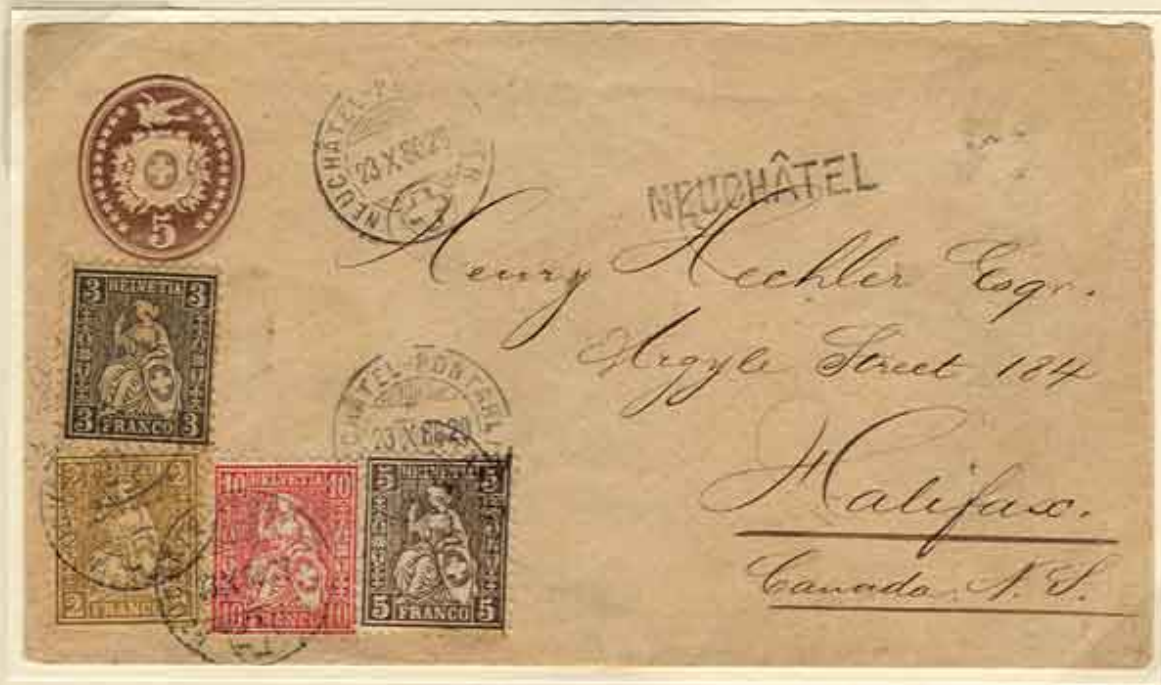 5
NEUCHÂTEL
23 X 86 20
NEUCHÂTEL
Henry Hechler Esqr.
Argyle Street 184
Halifax.
Canada. N. S.
3 HELVETIA 3
3 FRANCO 3
CHÂTEL-PONTARLI
23 X 86 20
2 2
2 FRANCO
10 HELVETIA 10
10 FRANCO 10
5 HELVETIA 5
5 FRANCO 5